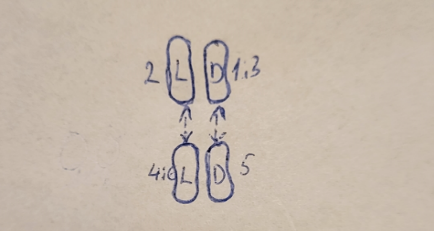 2 L D 1;3
4;6 L D 5